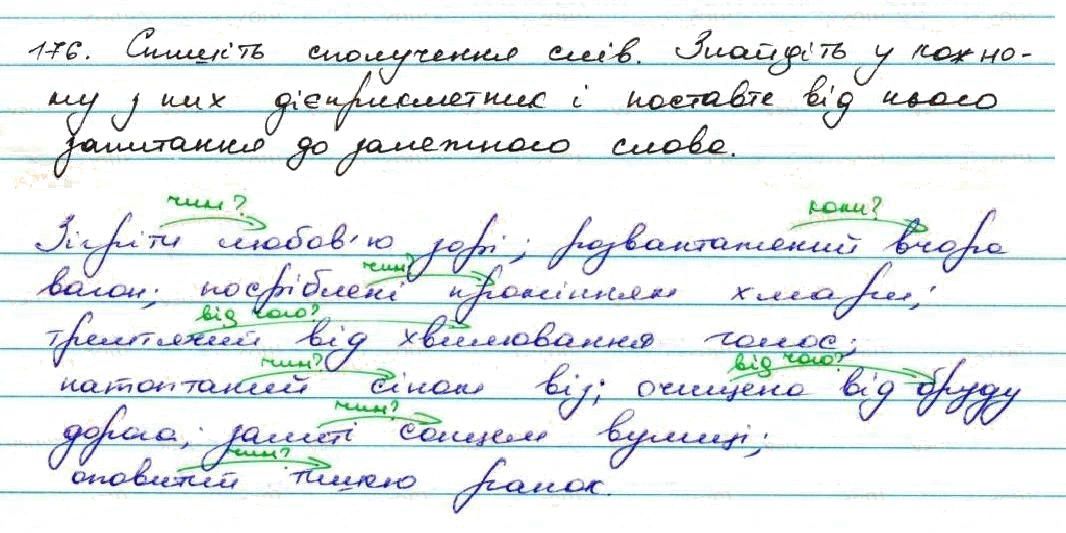 176. Спишіть сполучення слів. Знайдіть у кожно-
му з них дієприкметник і поставте від нього
запитання до залежного слова.
чим? коли?
Зігріти любов'ю зорі; розвантажений вчора
чим?
вагон; посріблені промінням хмари;
від чого?
тремтячий від хвилювання голос;
чим? від чого?
натоптаний сіном віз; очищена від бруду
чим?
дорога; залиті сонцем вулиці;
чим?
оповитий тишею ранок.